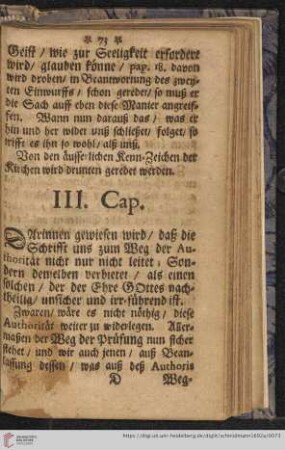 ❧ 73 ❧
Geist / wie zur Seeligkeit erfordert
wird / glauden könne / pag. 18. davon
wird droben / in Beantwortung des zwey-
ten Einwurffs / schon geredet / so muß er
die Sach auff eben diese Manier angreif-
fen. Wann nun darauß das / was er
hin und her wider unß schließet / folget / so
trifft es ihn so wohl / alß unß.
Von den äusserlichen Kenn-Zeichen der
Kirchen wird drunten geredet werden.
III. Cap.
DArinnen gewiesen wird / daß die
Schrifft uns zum Weg der Au-
thorität nicht nur nicht leitet; Son-
dern denselben verbietet / als einen
solchen / der der Ehre GOttes nach-
theilig / unsicher und irr-führend ist.
Zwaren / wäre es nicht nöthig / diese
Authorität weiter zu widerlegen. Aller-
maßen der Weg der Prüfung nun sicher
stehet / und wir auch jenen / auß Bean-
lassung dessen / was auß deß Authoris
D Weg-
https://digi.ub.uni-heidelberg.de/diglit/schmidmann1692a/0073